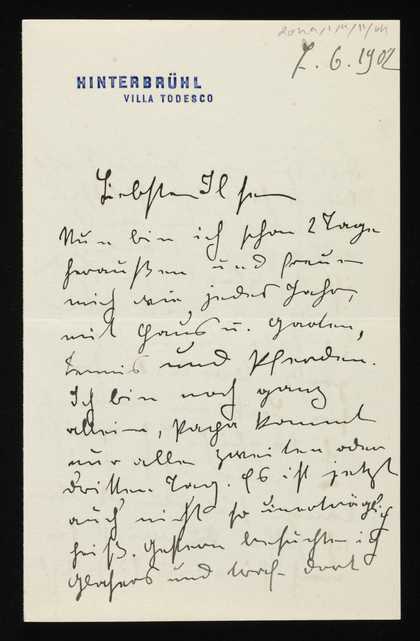 2. 6. 1902
HINTERBRÜHL
VILLA TODESCO
Liebsten Ilsen
Nun bin ich schon 2 Tage
heraußen und freue
mich wie jedes Jahr,
mit Haus u. Garten,
Tennis und Pferden.
Ich bin noch ganz
allein, Papa kommt
nur alle zweiten oder
dritten Tag. Es ist jetzt
auch nicht so unerträglich
heiß. Gestern besuchte ich
und dort